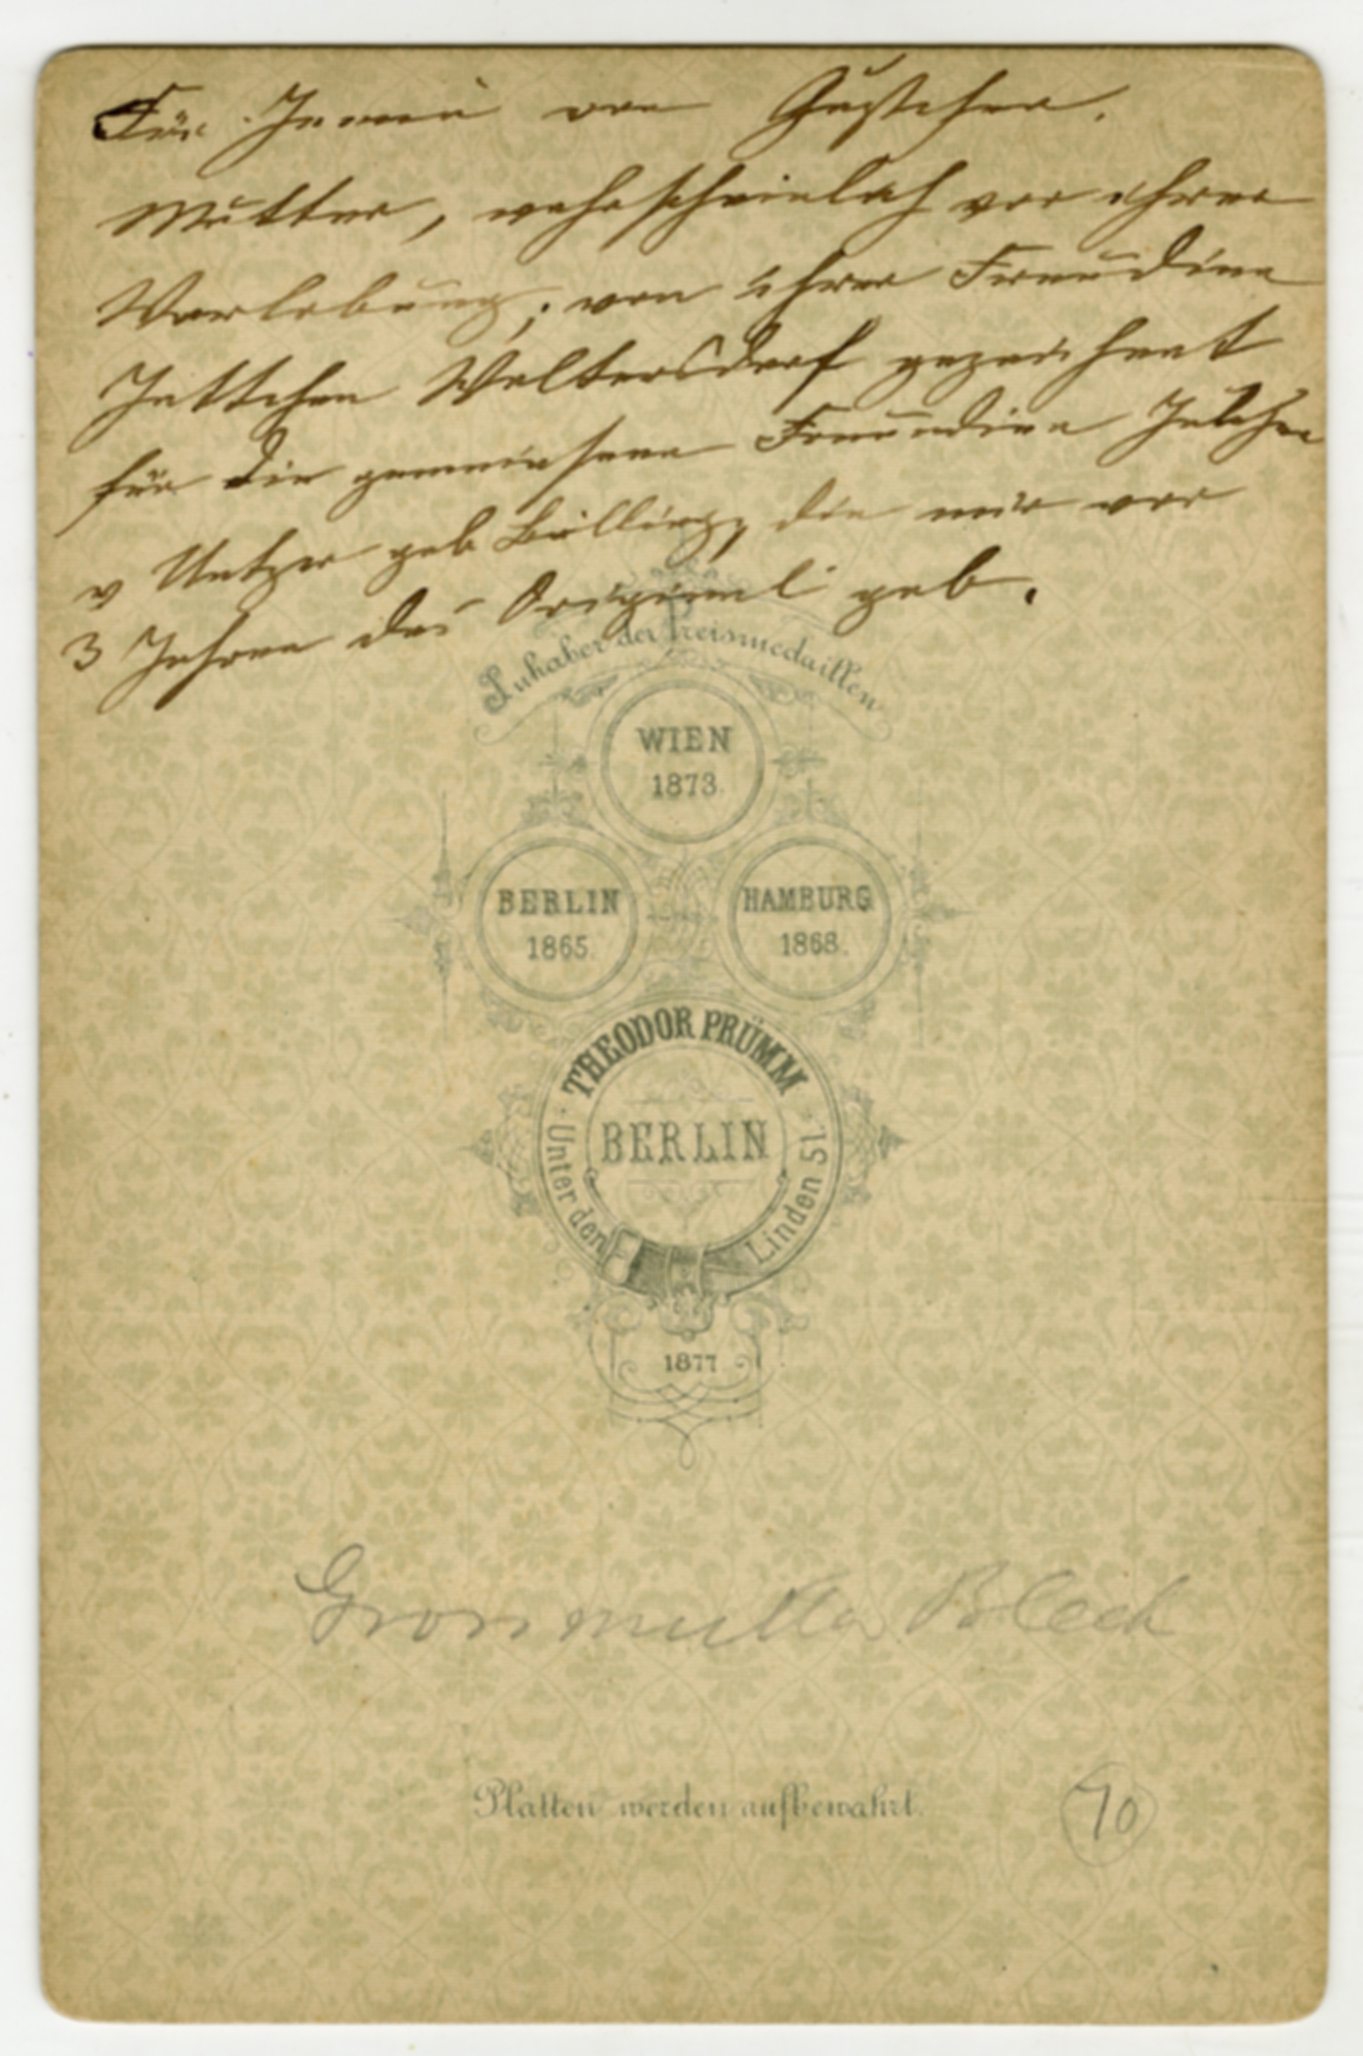 Für Jenni von Gustchen.
Mutter, wahrscheinlich vor ihrer
Verlobung, von ihrer Freundin
Jettchen Woltersdorf gezeichnet
für die gemeinsame Freundin Julchen
v geb Bülling, die mir vor
3 Jahren das Original gab.
Inhaber der Preismedaillen
WIEN
1873.
BERLIN
1865.
HAMBURG
1868.
THEODOR PRÜMM
BERLIN
Unter den Linden 51.
1877
Grossmutter Blech
Platten werden aufbewahrt.
90